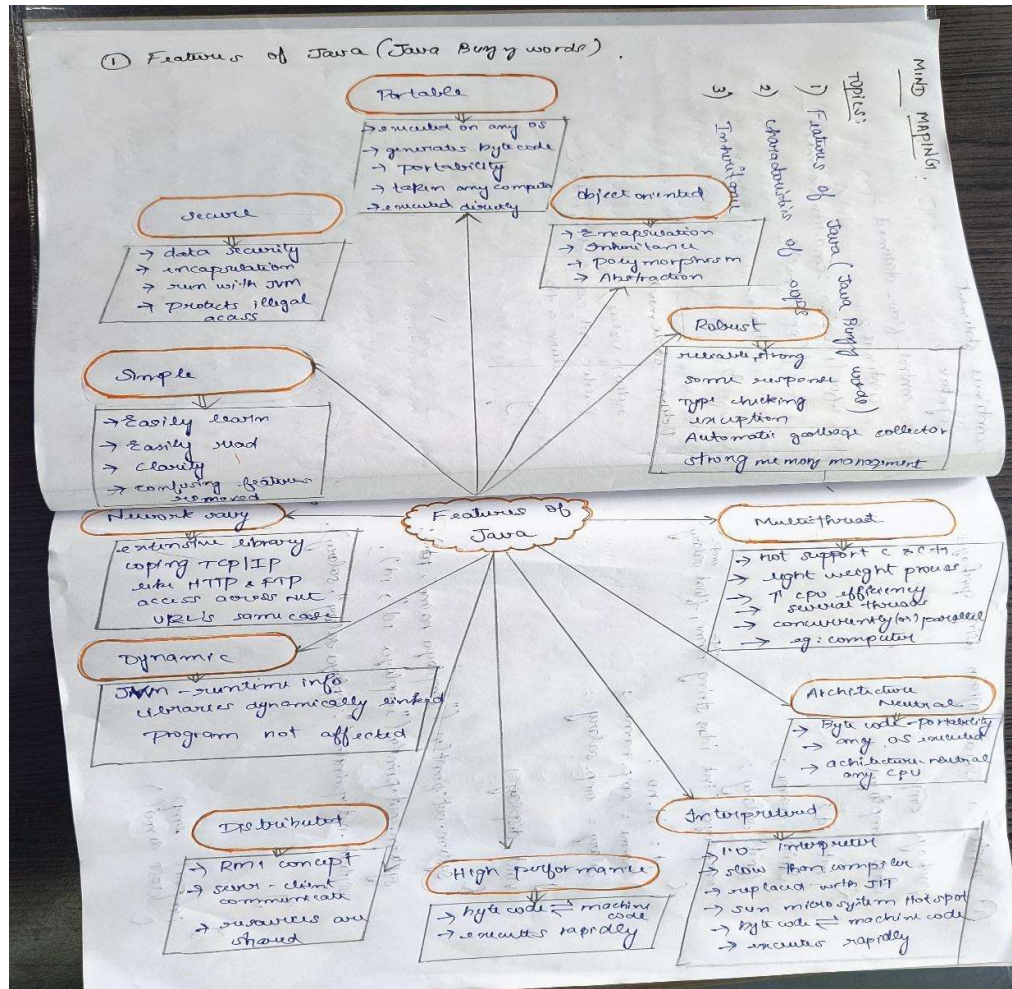 ① Features of Java (Java Buzzy words).
MIND MAPING:
TOPICS:
1) Features of Java (Java Buzzy words)
2) characteristics of oops
3) Inheritance
Portable
→ executed on any OS
→ generates byte code
→ portability
→ taken any computer
→ executed directly
Object oriented
→ Encapsulation
→ Inheritance
→ polymorphism
→ Abstraction
secure
→ data security
→ encapsulation
→ run with JVM
→ protects illegal
acass
Robust
reliable, strong
some response
Type checking
exception
Automatic goabage collector
strong memory management
Simple
→ Easily learn
→ Easily read
→ Clarity
→ confusing features
removed
Features of
Java
Nework savy
extensive library
coping TCP/IP
like HTTP & FTP
access across net
URL's same case
Multithreat
→ Not support C & C++
→ light weight process
→ ↑ CPU efficiency
→ several threads
→ concurrently (or) parallel
→ eg: computer
Dynamic
JVM - runtime info
libraries dynamically linked
program not affected
Architecture
Neutral
→ Byte code - portability
→ any OS executed
→ achitecture-neutral
any CPU
Distributed
→ RMI concept
→ sever - client
communicate
→ resources are
shared
High performance
→ byte code ⇌ machine
code
→ executes rapidly
Interpretived
→ 1.0 interpreter
→ slow than compiler
→ replaced with JIT
→ sun microsystem Hotspot
→ byte code ⇌ machine code
→ executes rapidly